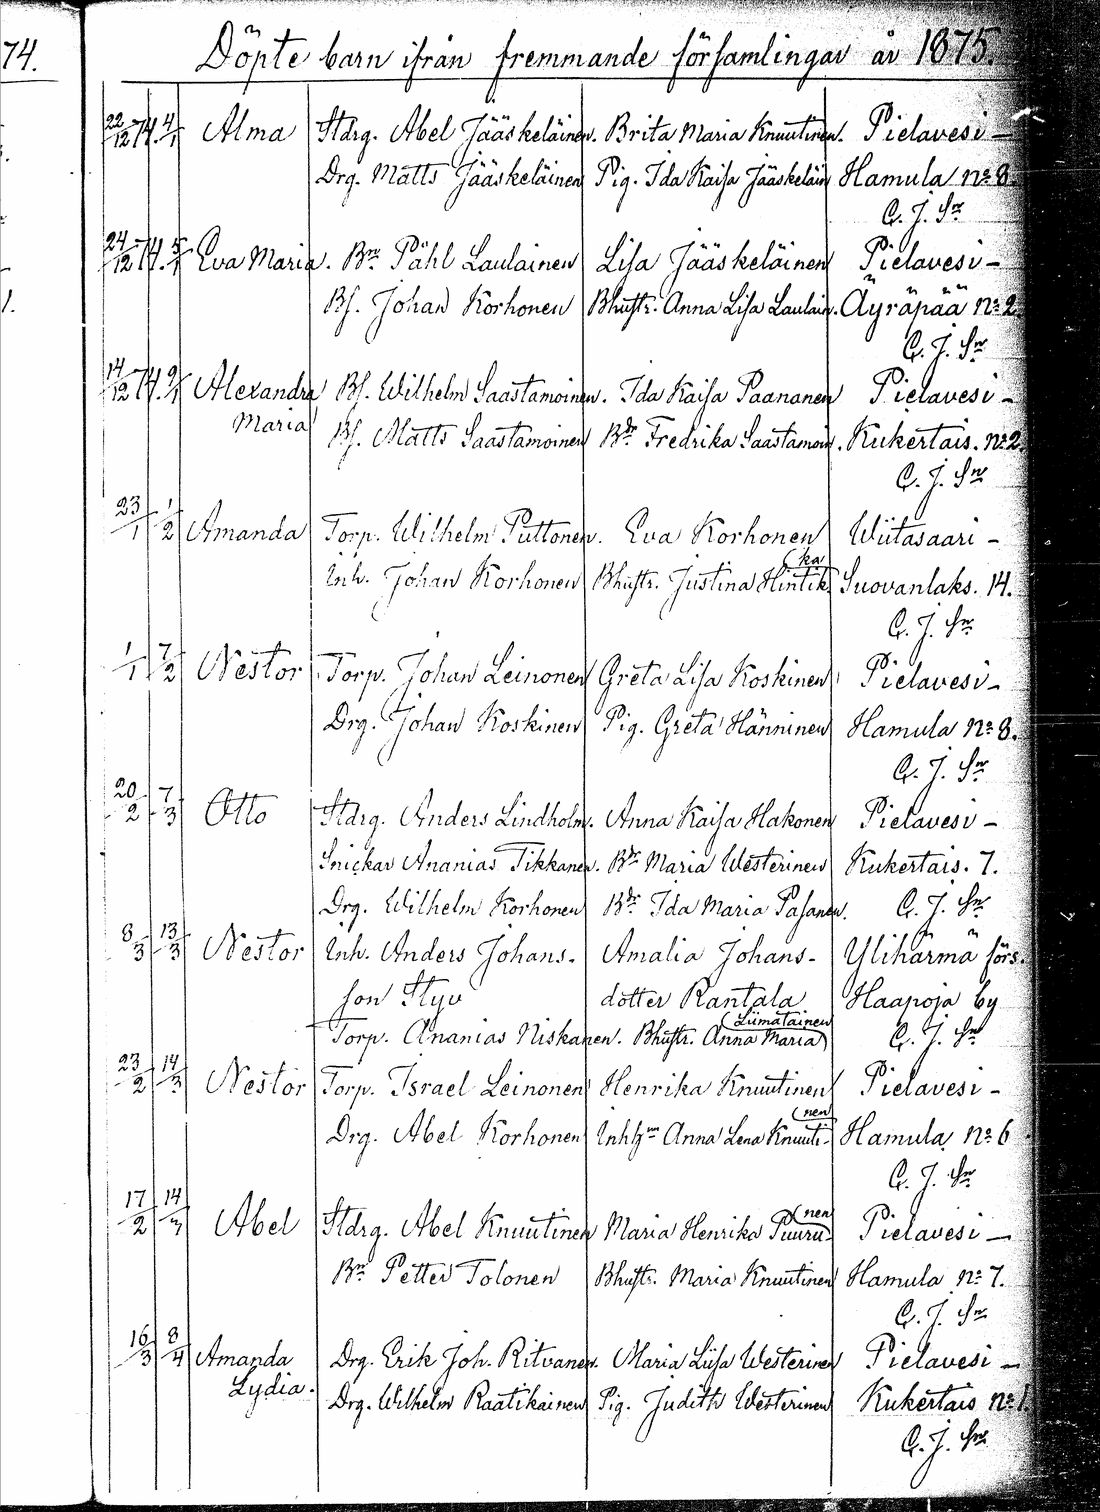 74.
Döpte barn ifrån fremmande församlingar år 1875.
22/12 74. 4/1 Alma Stdrg. Abel Jääskeläinen. Brita Maria Knuutinen. Pielavesi –
Drg. Matts Jääskeläinen Pig. Ida Kaisa Jääskeläin Hamula No 8.
C. J. Sn
24/12 74. 5/1 Eva Maria. Bn Påhl Laulainen Lisa Jääskeläinen Pielavesi –
Bs. Johan Korhonen Bhustr. Anna Lisa Laulain. Äyräpää No 2
C. J. Sn
14/12 74. 9/1 Alexandra Bs. Wilhelm Saastamoinen. Ida Kaisa Paananen Pielavesi –
Maria Bs. Matts Saastamoinen Bdr Fredrika Saastamoin. Kukertais. No 2.
C. J. Sn
23/1 1/2 Amanda Torp. Wilhelm Puttonen. Eva Korhonen Wiitasaari –
Inh. Johan Korhonen Bhustr. Justina Hintik(ka Suovanlaks. 14.
C. J. Sn
1/1 7/2 Nestor Torp. Johan Leinonen Greta Lisa Koskinen Pielavesi –
Drg. Johan Koskinen Pig. Greta Hänninen Hamula No 8.
C. J. Sn
20/2 7/3 Otto Stdrg. Anders Lindholm. Anna Kaisa Hakonen Pielavesi –
Snickar Ananias Tikkanen. Bdr Maria Westerinen Kukertais. 7.
Drg. Wilhelm Korhonen Bdr Ida Maria Pasanen. C. J. Sn
8/3 13/3 Nestor Inh. Anders Johans- Amalia Johans- Ylihärmä förs.
son Styv dotter Rantala Haapoja by
Torp. Ananias Niskanen. Bhustr. Anna Maria (Liimatainen C. J. Sn
23/2 14/3 Nestor Torp. Israel Leinonen Henrika Knuutinen Pielavesi –
Drg. Abel Korhonen Inhhn Anna Lena Knuuti-(nen Hamula No 6
C. J. Sn
17/2 14/3 Abel Stdrg. Abel Knuutinen Maria Henrika Puuru-(nen Pielavesi –
Bn Petter Tolonen Bhustr. Maria Knuutinen Hamula No 7.
C. J. Sn
16/3 8/4 Amanda Drg. Erik Joh. Ritvanen. Maria Liisa Westerinen Pielavesi –
Lydia. Drg. Wilhelm Raatikainen Pig. Judith Westerinen Kukertais No 1.
C. J. Sn